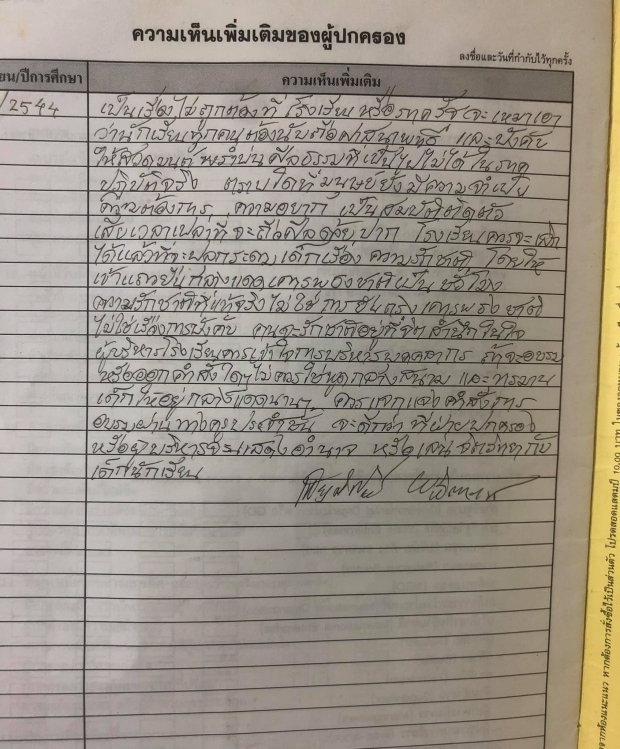 ความเห็นเพิ่มเติมของผู้ปกครอง
ลงชื่อและวันที่กำกับไว้ทุกครั้ง
ยน/ปีการศึกษา
ความเห็นเพิ่มเติม
/2544
เป็นเรื่องไม่ถูกต้องที่ โรงเรียน หรือภาครัฐจะเหมาเอา
ว่านักเรียนทุกคนต้องนับถือศาสนาพุทธ และบังคับ
ให้สวดมนต์ พร่ำบ่นศีลธรรมที่เป็นไปไม่ได้ ในภาค
ปฏิบัติจริง ตราบใดที่มนุษย์ยังมีความจำเป็น
ความต้องการ ความอยาก เป็นสมบัติติดตัว
เสียเวลาเปล่าที่จะถือศีลด้วยปาก โรงเรียนควรจะเลิก
ได้แล้วที่จะปลุกระดมเด็กเรื่อง ความรักชาติ โดยให้
เข้าแถวยืนกลางแดดเคารพธงชาติเป็น ชั่วโมง
ความรักชาติที่แท้จริง ไม่ใช่ การยืนตรงเคารพธงชาติ
ไม่ใช่เรื่องการบังคับ คนจะรักชาติอยู่ที่จิตสำนึกในใจ
ผู้บริหารโรงเรียนควรเข้าใจการบริหารบุคคลากร ถ้าจะอบรม
หรือออกคำสั่งใดๆ ไม่ควรใช้พูดกลางสนาม และทรมาน
เด็กให้อยู่กลางแดดนานๆ ควรแจกแจงคำสั่งการ
อบรมผ่านทางครูประจำชั้น จะดีกว่า ที่ฝ่ายปกครอง
หรือฝ่ายบริหารจะแสดงอำนาจ หรือเล่นจิตวิทยากับ
เด็กนักเรียน